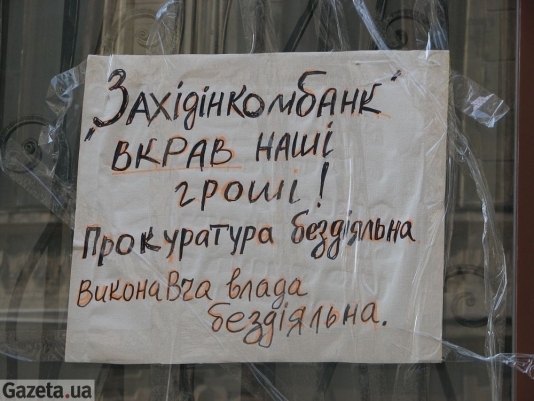 „Західінкомбанк"
вкрав наші
гроші!
Прокуратура бездіяльна
Виконавча влада
бездіяльна.
Gazeta.ua